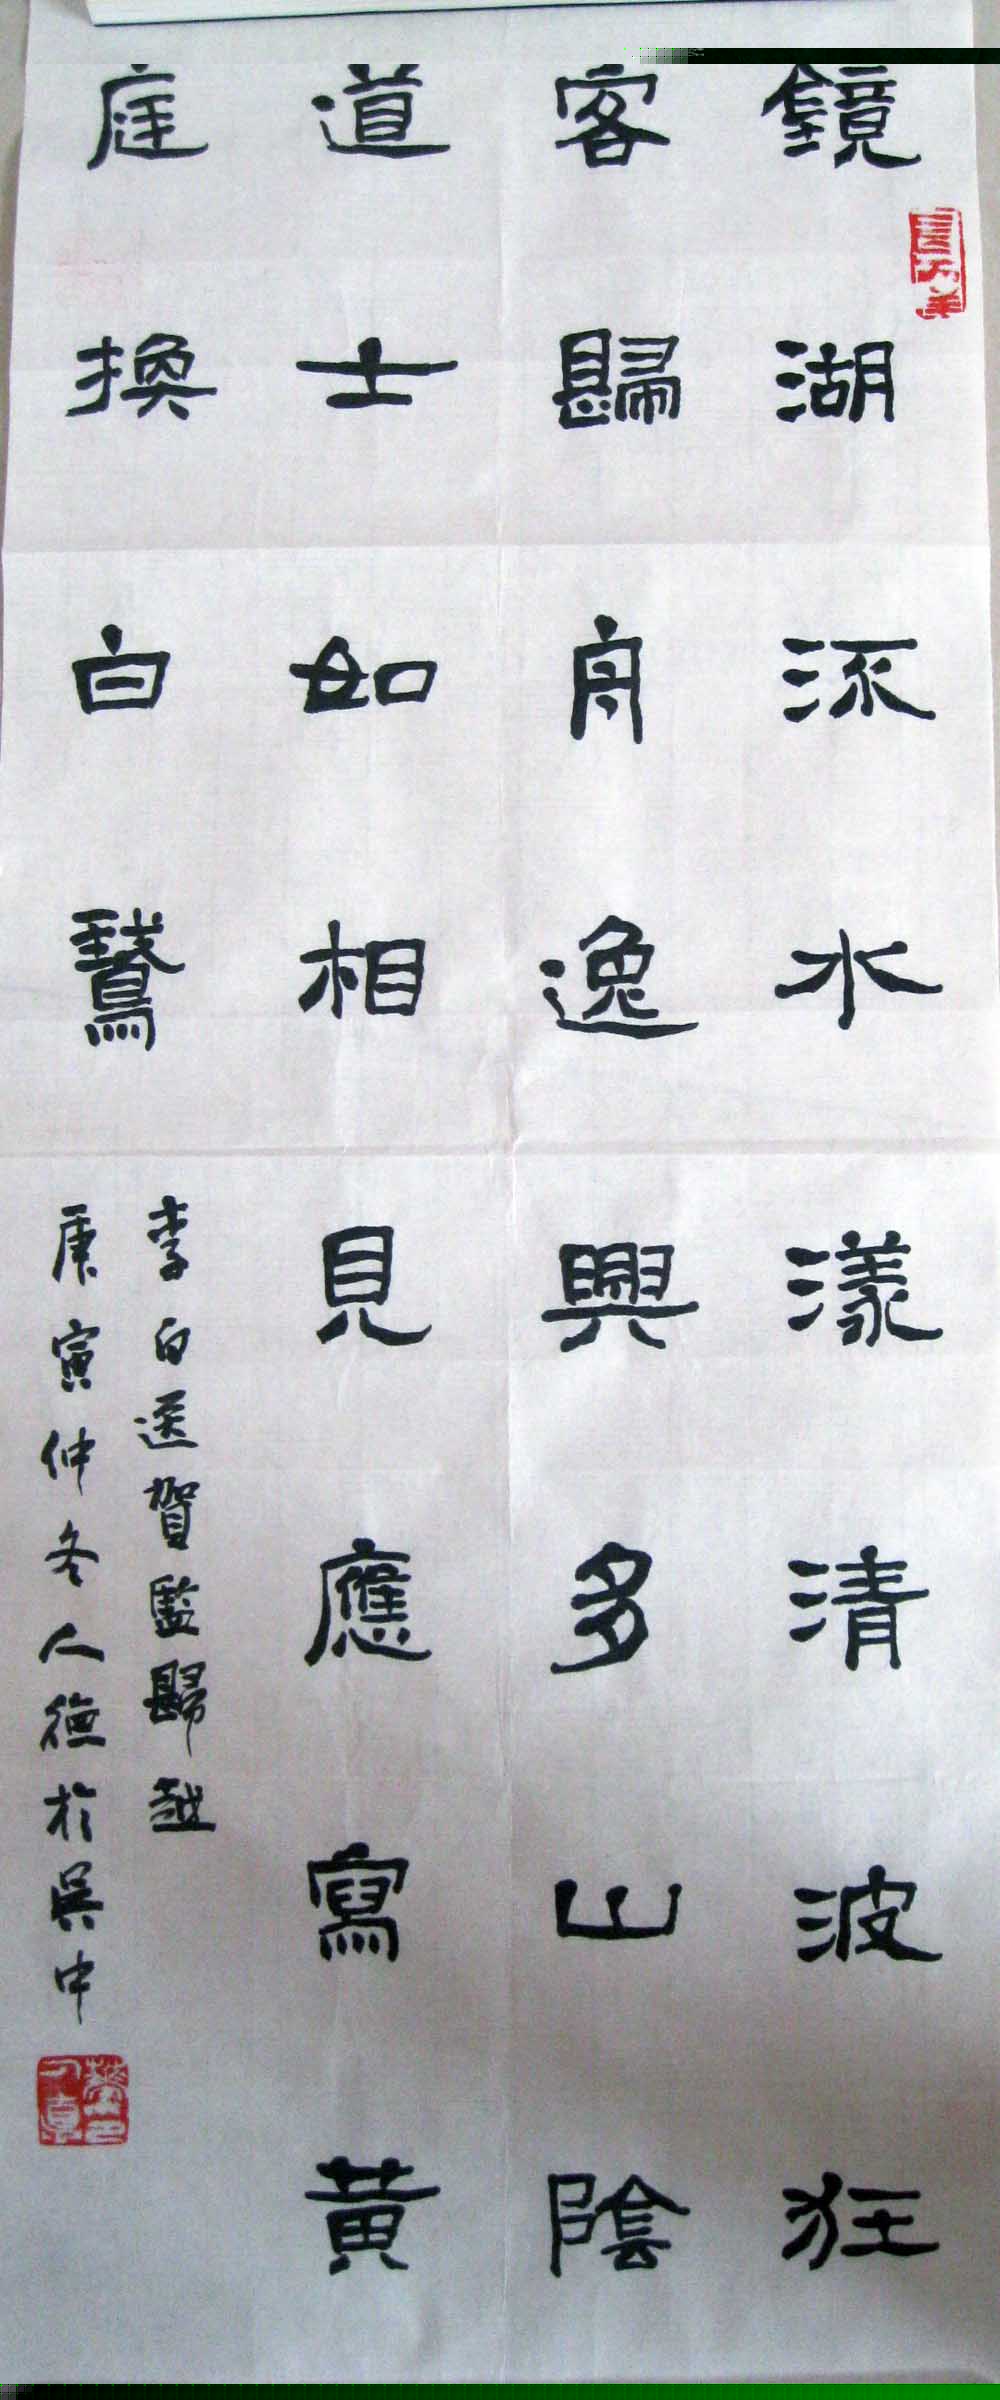 鏡湖流水漾清波狂
客歸舟逸興多山陰
道士如相見應寫黃
庭換白鵞
李白送賀監歸越
庚寅仲冬人德於吳中